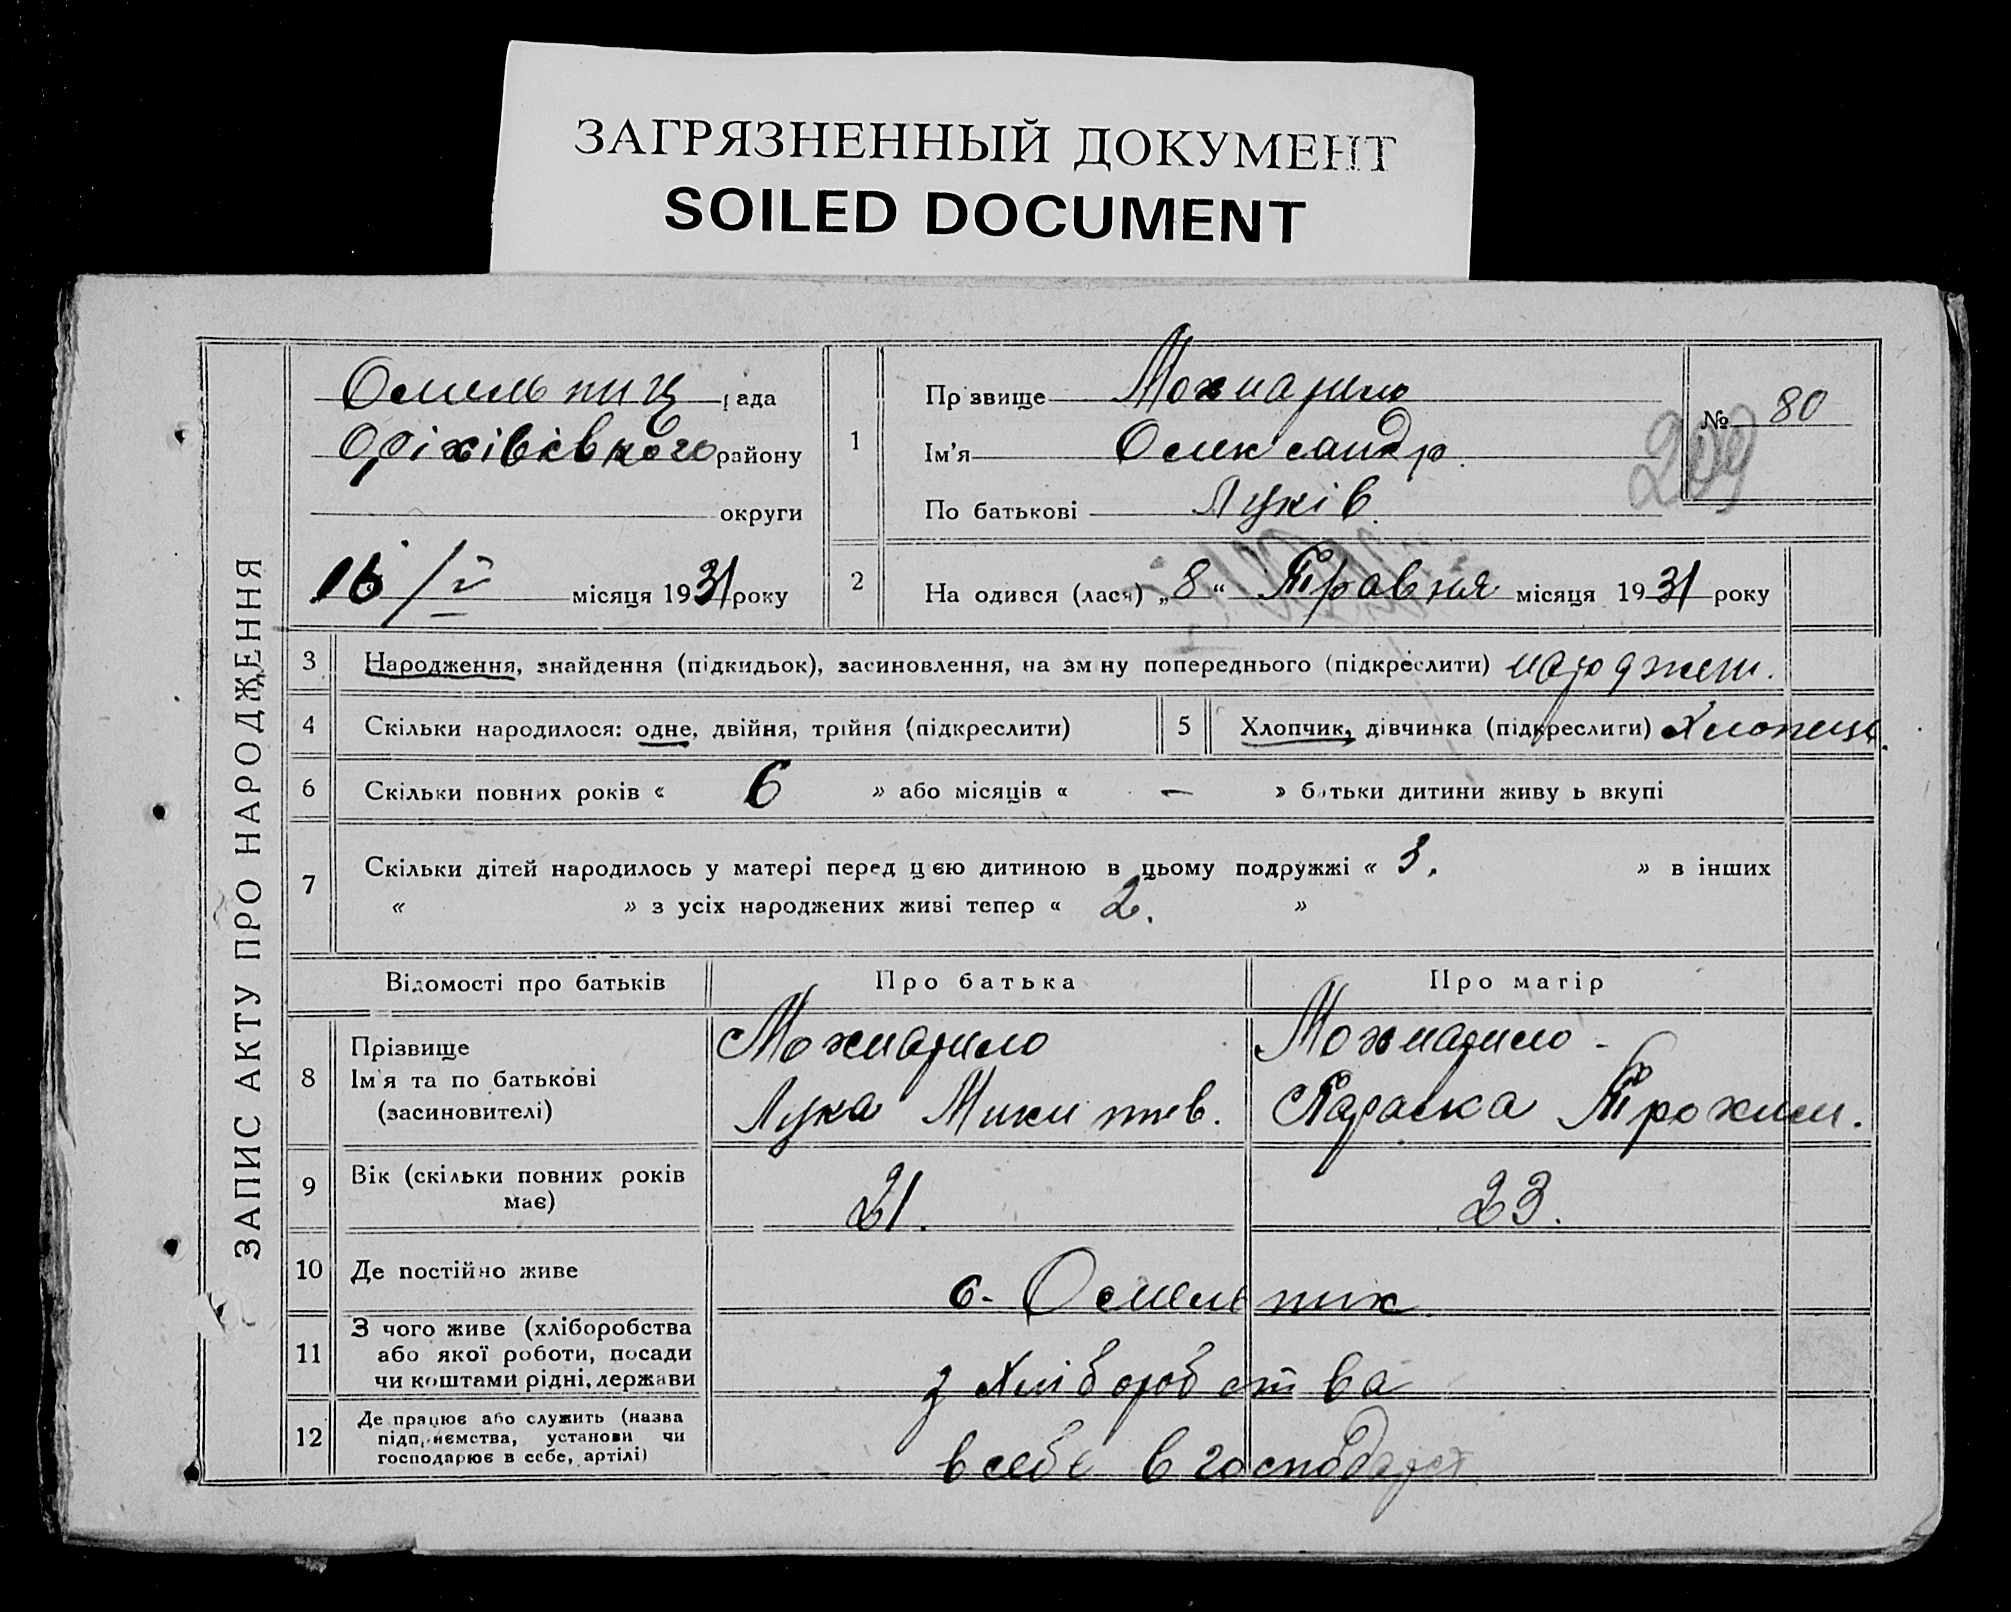 ЗАГРЯЗНЕННЫЙ ДОКУМЕНТ
SOILED DOCUMENT
ЗАПИС АКТУ ПРО НАРОДЖЕННЯ
Омельниц рада
Оріхівського району
округи
16/V місяця 1931 року
1
Прізвище Можнарило
Ім'я Олександр.
По батькові Луків.
№ 80
209
2
На одився (лася) „8“ Травня місяця 1931 року
3 Народження, знайдення (підкидьок), засиновлення, на зміну попереднього (підкреслити) народжен.
4 Скільки народилося: одне, двійня, трійня (підкреслити)
5 Хлопчик, дівчинка (підкреслити) Хлопець.
6 Скільки повних років « 6 » або місяців « — » батьки дитини живуть вкупі
7 Скільки дітей народилось у матері перед цією дитиною в цьому подружжі « 3. » в інших
« » з усіх народжених живі тепер « 2. »
Відомості про батьків Про батька Про матір
8 Прізвище Можнарило Можнарило -
Ім'я та по батькові
(засиновителі) Лука Микитів. Параска Трохим.
9 Вік (скільки повних років
має) 21. 23.
10 Де постійно живе с. Омельник
11 З чого живе (хліборобства
або якої роботи, посади
чи коштами рідні, держави з хліборобства
12 Де працює або служить (назва
підприємства, установи чи
господарює в себе, артілі) в себе в господарст